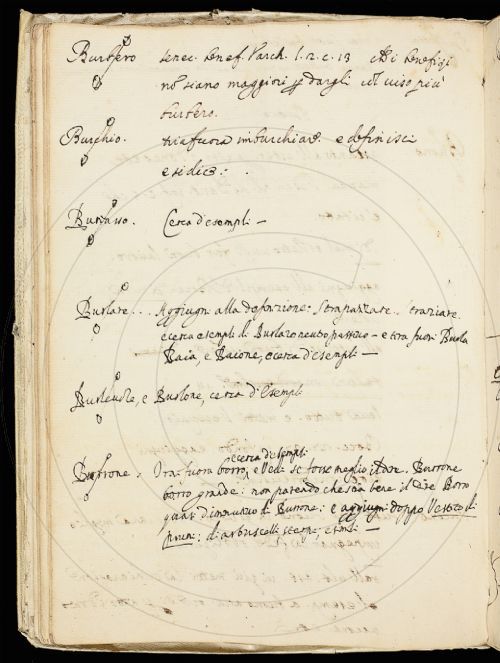 Burbero senec. benef. Varch. l. 2. c. 13 che i benefizj
nō siano maggiori p dargli col viso più
burbero.
Burchio. tria fuora imburchiare. e definisci
e si dice:
Burbasso. Cerca d'esempli —
Burlare... Aggiugni alla definizione: Strapazzare. straziare.
e cerca esempli di Burlare neutro passivo — e tra fuori Burla
Baia, e Baione, e cerca d'esempli —
Burlevole, e Burlone, cerca d'Esempli
e cerca d'esempli
Burrone: Tra: fuora borro, e Vedi se forse meglio Burrone
borro grande: non parendo che stia bene il dire Borro
quasi diminutivo di Burrone: e aggiugni doppo Vestito di
pruni: di arbuscelli sterpi, e simili —